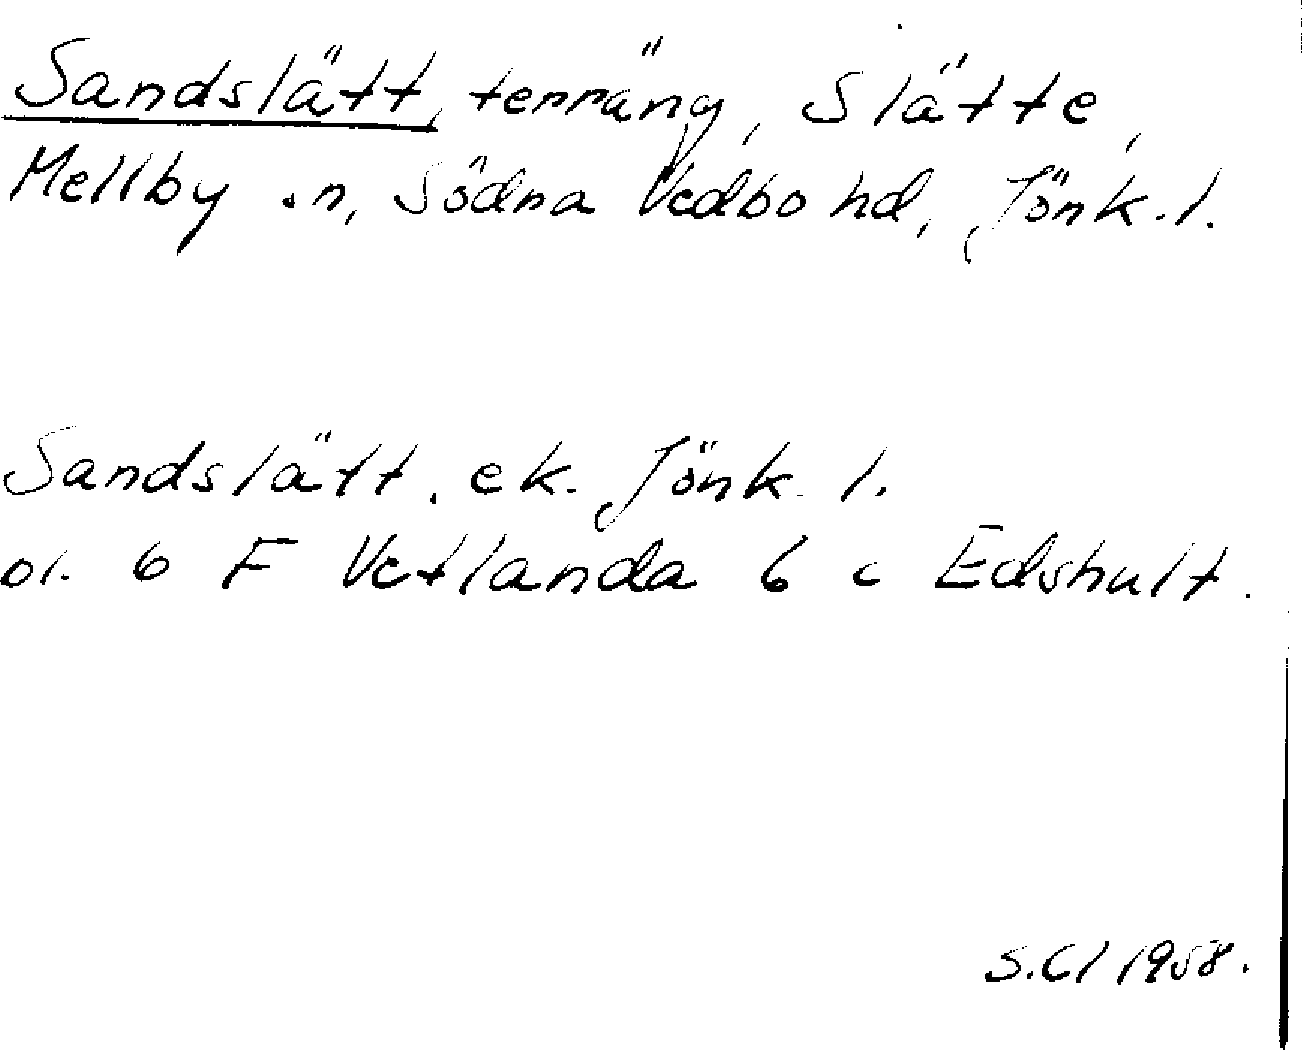 Sandslätt, terräng, Slätte,
Mellby sn, Södra Vedbo hd, Jönk. l.
Sandslätt. ek. Jönk. l.
bl. 6 F Vetlanda 6 c Edshult.
S.Cl 1958.